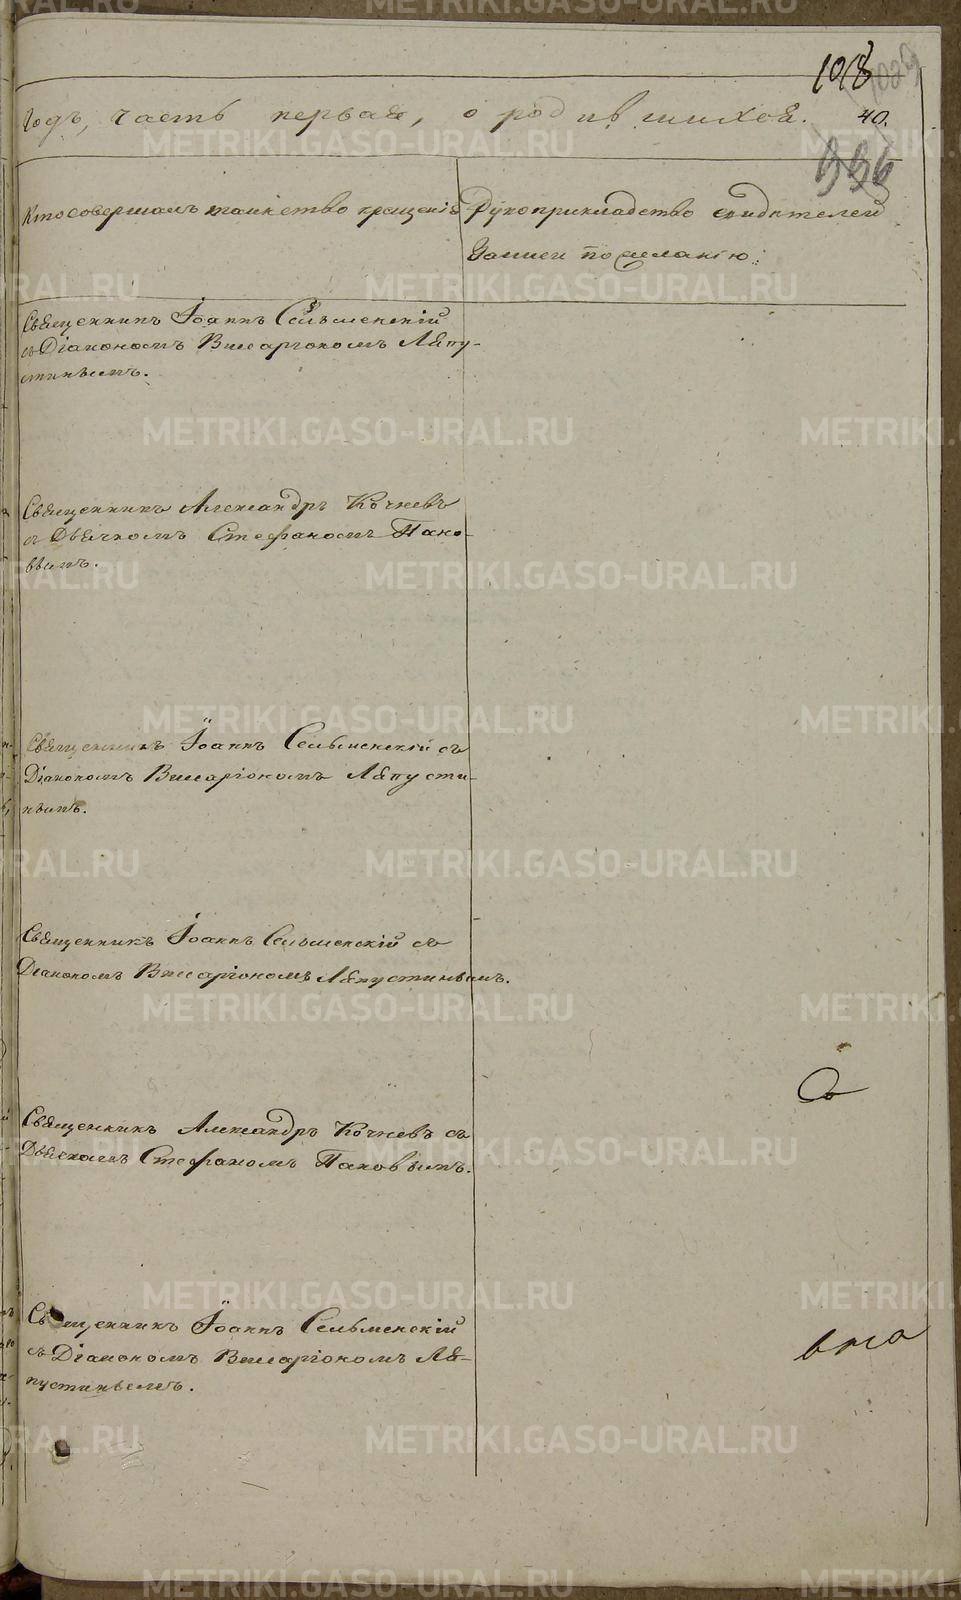 1018
1029
Годъ, часть первая, о родившихся. 40.
996
Кто совершалъ таинство крещенія
Рукоприкладство свидѣтелей
записи по желанію:
Священникъ Іоаннъ Сельменскій
съ Діакономъ Виссаріономъ Ляпу-
стинымъ.
Священникъ Александръ Кочневъ
съ Дьячкомъ Стефаномъ Пано-
вымъ.
Священникъ Іоаннъ Сельменскій съ
Діакономъ Виссаріономъ Ляпусти-
нымъ.
Священникъ Іоаннъ Сельменскій съ
Діакономъ Виссаріономъ Ляпустинымъ.
Съ
Священникъ Александръ Кочневъ съ
Дьячкомъ Стефаномъ Пановымъ.
Священникъ Іоаннъ Сельменскій
съ Діакономъ Виссаріономъ Ля-
пустинымъ.
METRIKI.GASO-URAL.RU